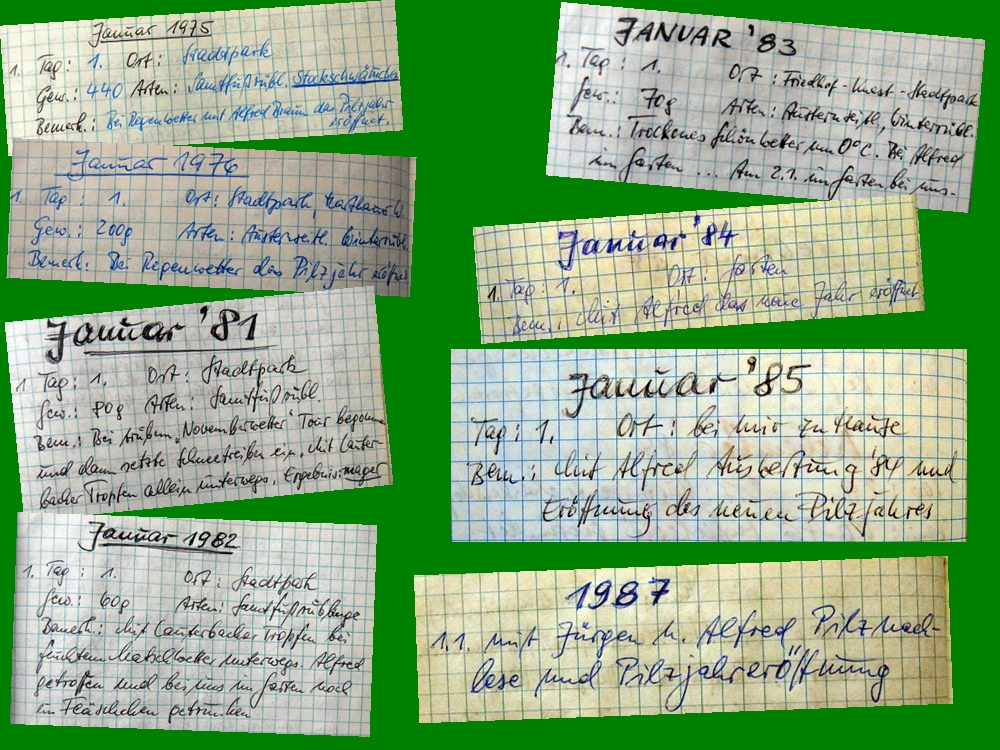 Januar 1975
1. Tag: 1. Ort: Stadtpark
Gew.: 440 Arten: Samtfußrübl. Stockschwämmchen
Bemerk.: Bei Regenwetter mit Alfred Braun das Pilzjahr
eröffnet.
Januar 1976
1. Tag: 1. Ort: Stadtpark,
Gew.: 200g Arten: Austernseitl. Winterrübl.
Bemerk.: Bei Regenwetter das Pilzjahr eröffnet
Januar '81
1 Tag: 1. Ort: Stadtpark
Gew.: 80g Arten: Samtfußrübl.
Bem.: Bei trübem „Novemberwetter" Tour begonnen
und dann setzte Schneetreiben ein. Mit Lauter-
bacher Tropfen allein unterwegs. Ergebnis: mager
Januar 1982
1. Tag: 1. Ort: Stadtpark
Gew.: 60g Arten: Samtfußrüblinge
Bemerk.: Mit Lauterbacher Tropfen bei
feuchtem Matschwetter unterwegs. Alfred
getroffen und bei uns im Garten noch
ein Fläschchen getrunken
JANUAR '83
1. Tag: 1. Ort: Friedhof-Kunst-Stadtpark
Gew.: 70g Arten: Austernseitl., Winterrübl.
Bem.: Trockenes Schönwetter um 0°C. Bei Alfred
im Garten ... Am 2.1. im Garten bei uns.
Januar '84
1. Tag: 1. Ort: Garten
Bem.: Mit Alfred das neue Jahr eröffnet
Januar '85
Tag: 1. Ort: bei mir zu Hause
Bem.: Mit Alfred Auswertung '84 und
Eröffnung des neuen Pilzjahres
1987
1.1. mit Jürgen u. Alfred Pilznach-
lese und Pilzjahreröffnung